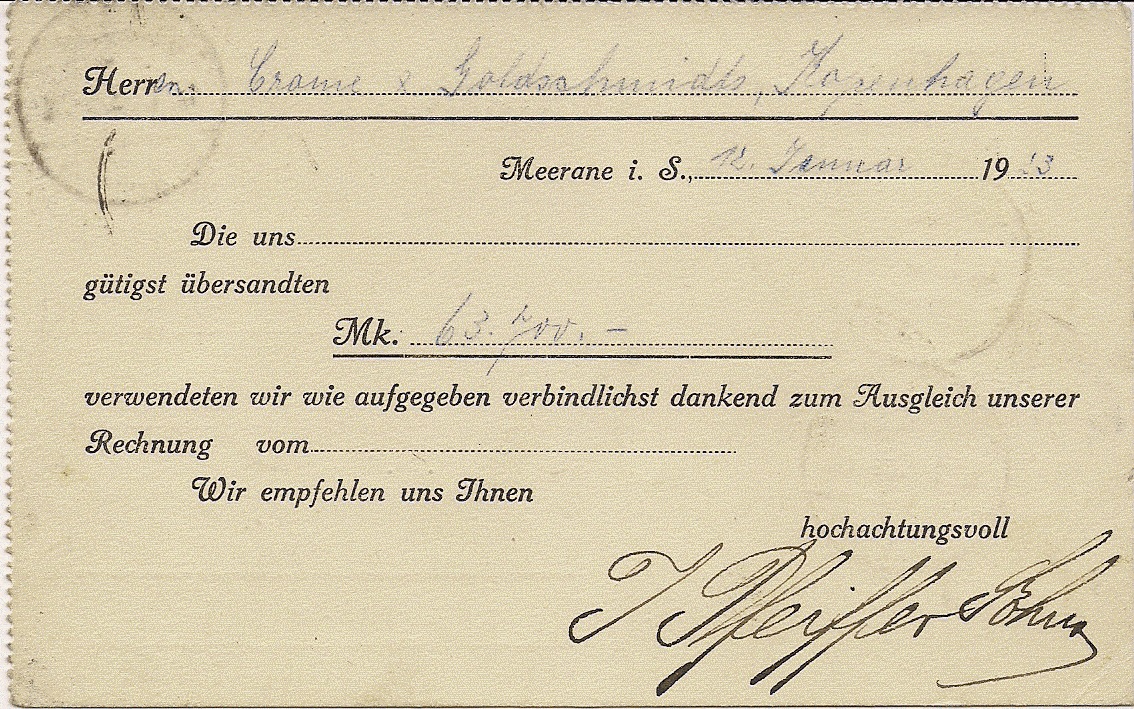 Herren Crome & Goldschmidts, Kopenhagen
Meerane i. S., 12. Januar 1923
Die uns
gütigst übersandten
Mk. 63.700.–
verwendeten wir wie aufgegeben verbindlichst dankend zum Ausgleich unserer
Rechnung vom
Wir empfehlen uns Ihnen
hochachtungsvoll
J Pfeiffer Söhne